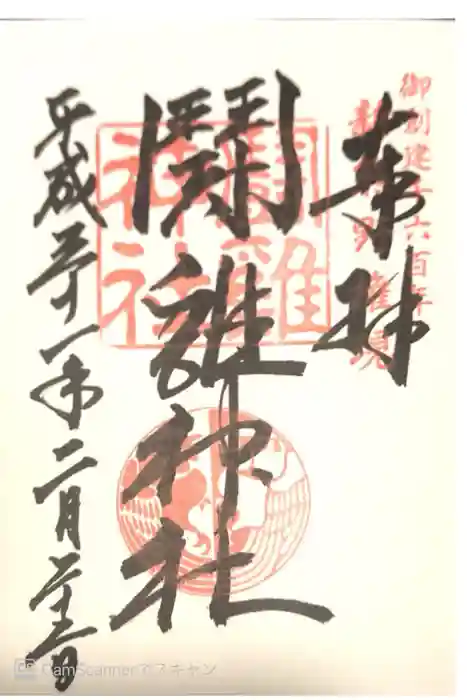 御創建千六百年
新熊野權現
奉拝
鬪雞神社
鬪雞神社
平成三十一年二月 日
CS CamScannerでスキャン